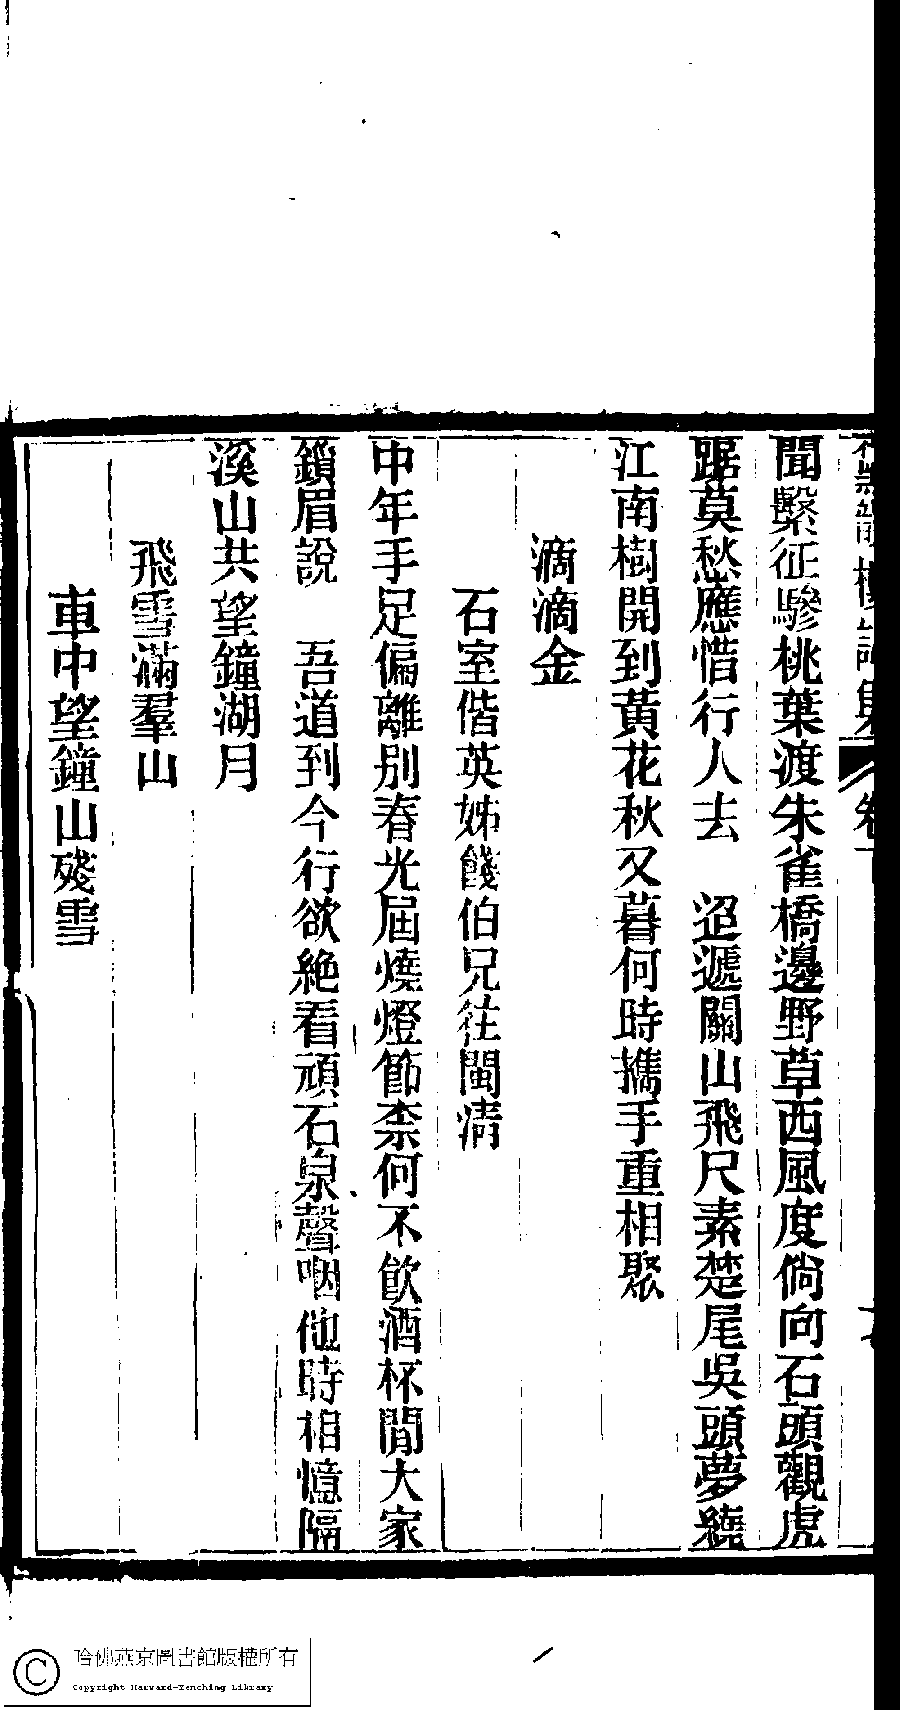 聞繫征驂桃葉渡朱雀橋邊野草西風度倘向石頭觀虎
踞莫愁應惜行人去　迢遞關山飛尺素楚尾吳頭夢繞
江南樹開到黃花秋又暮何時攜手重相聚
滴滴金
石室偕英姊餞伯兄往閩淸
中年手足偏離別春光屆燒燈節柰何不飮酒杯閒大家
鎖眉說　吾道到今行欲絶看頑石泉聲咽他時相憶隔
溪山共望鐘湖月
飛雪滿羣山
車中望鐘山殘雪
哈佛燕京圖書館版權所有
Copyright Harvard-Yenching Library